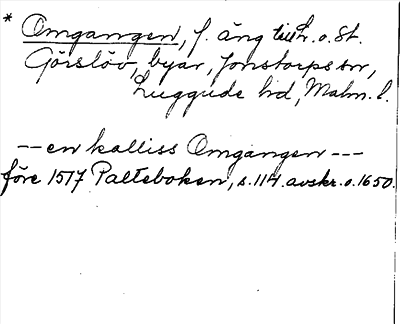 * Omgangen, f. äng till L. o. St.
Görslöv, byar, Jonstorps sn,
Luggude hd, Malm. l.
-- en kalliss Omgangen ---
före 1517 Palteboken, s. 114. avskr. o. 1650.